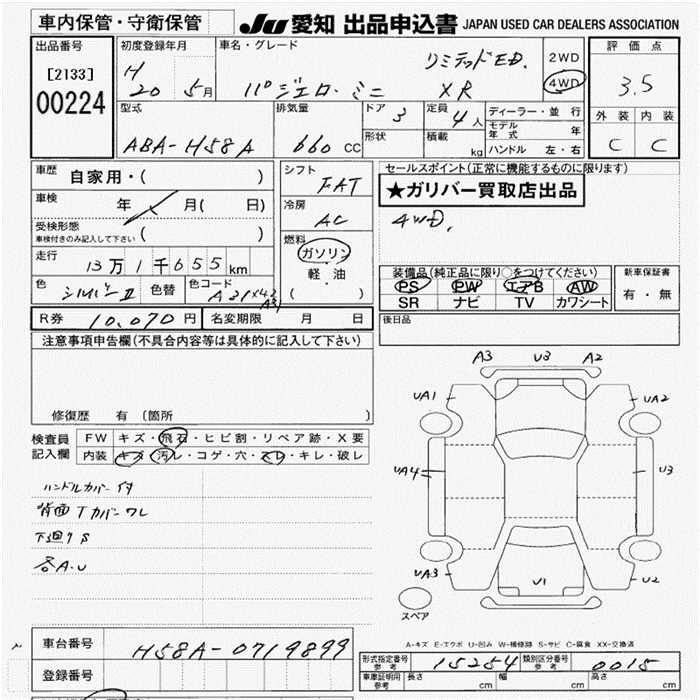 車内保管・守衛保管
JU 愛知 出品申込書 JAPAN USED CAR DEALERS ASSOCIATION
出品番号
[2133]
00224
初度登録年月
H
20 5月
車名・グレード
リミテッドED.
パジェロ・ミニ XR
2WD
4WD
評価点
3.5
外装 内装
C C
型式
ABA-H58A
排気量
660 CC
ドア 3
形状
定員 4人
積載 kg
ディーラー・並行
モデル年式 年
ハンドル 左・右
車歴 自家用・( )
車検 年 月( 日)
受検形態
車検付きのみ記入して下さい ( )
走行 13万1千655km
色 シルバーII 色替 色コード A31×42
A31
シフト
FAT
冷房
AC
燃料
ガソリン
軽・油
( )
セールスポイント(正常に機能するものに限ります)
★ガリバー買取店出品
4WD.
装備品(純正品に限り○をつけてください)
PS PW エアB AW
SR ナビ TV カワシート
新車保証書
有・無
R券 10,070円 名変期限 月 日
後日品
注意事項申告欄(不具合内容等は具体的に記入して下さい)
修復歴 有(箇所 )
検査員記入欄
FW キズ・飛石・ヒビ割・リペア跡・X要
内装 キズ・汚レ・コゲ・穴・スレ・キレ・破レ
ハンドルカバー付
背面Tカバーワレ
下廻りS
各A.U
A3 U3 A2
UA1 UA2
UA4 U3
UA3 U1 U2
スペア
A-キズ E-エクボ U-凹み W-補修跡 S-サビ C-腐食 XX-交換済
車台番号 H58A-0719899
登録番号
形式指定番号 参考 15254 類別区分番号 参考 0015
車庫証明用 参考 長さ cm 幅 cm 高さ cm